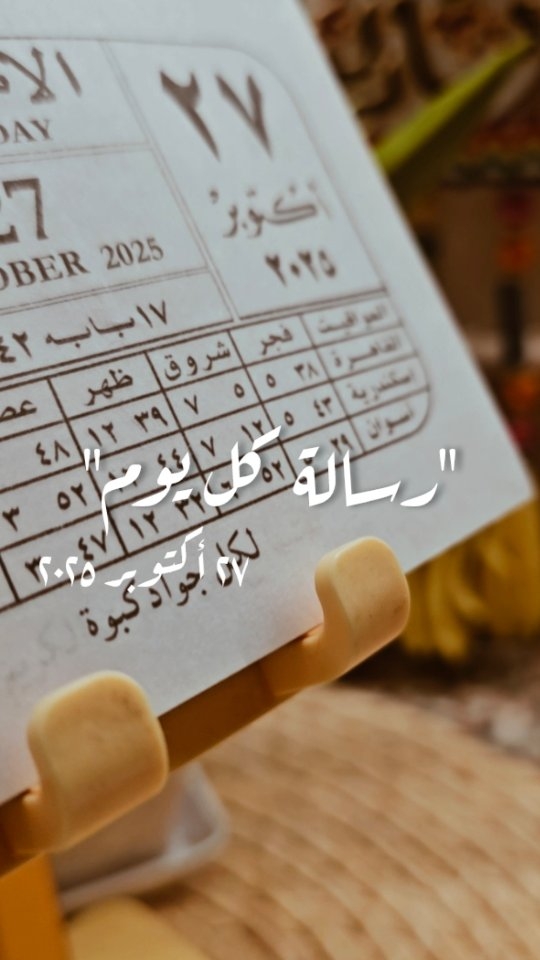 ٢٧
أكتوبر
٢٠٢٥
DAY
27
OBER 2025
١٧ بابه
المواقيت فجر شروق ظهر
القاهرة ٣٨ ٥ ٥ ٧ ٣٩ ١٢ ٤٨
اسكندرية ٤٣ ٥ ١٢ ٧ ٤٤ ٥٢ ٣
أسوان ٢٩ ٥٢ ٣٢ ١٢ ٤٧
"رسالة كل يوم"
٢٧ أكتوبر ٢٠٢٥
لكل جواد كبوة